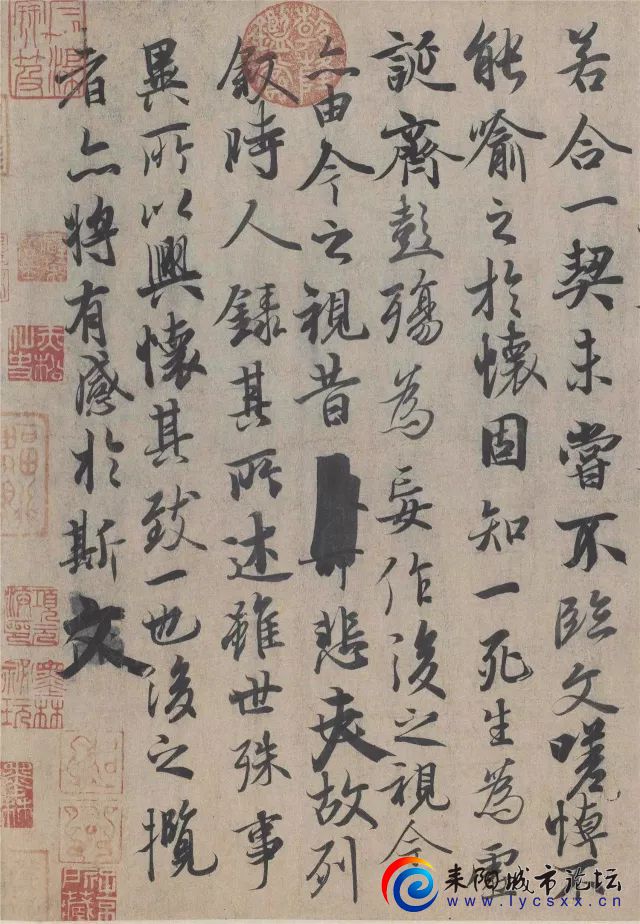 若合一契未嘗不臨文嗟悼不
能喻之於懷固知一死生為虛
誕齊彭殤為妄作後之視今
亦由今之視昔悲夫故列
敘時人錄其所述雖世殊事
異所以興懷其致一也後之攬
者亦將有感於斯文
墨林祕玩
耒阳城市论坛
www.lycsxx.cn